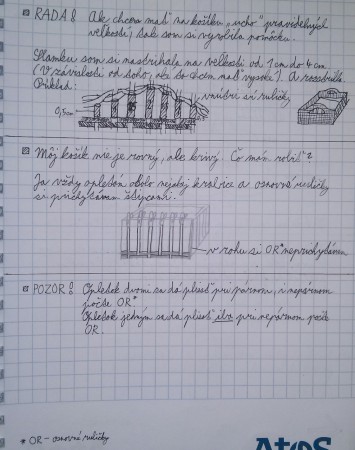 RADA! Ak chcem mať na košíku "ucho" pravidelných
veľkostí, tak som si vyrobila pomôcku.
Slamku som si nastrihala na veľkosti od 1 cm do 4 cm
(V závislosti od toho, ako to chcem mať vysoké). A rozstrihla.
Príklad:
vnútri sú ruličky
0,5cm
Môj košík nie je rovný, ale krivý. Čo mám robiť?
Ja vždy opletám okolo nejakej krabice a osnovné ruličky
si prichytávam štipcami.
v rohu si OR* neprichytávam
POZOR! Opletok dvomi sa dá pliesť pri párnom, i nepárnom
počte OR*.
Opletok jedným sa dá pliesť iba pri nepárnom počte
OR.
* OR - osnovné ruličky
Atos